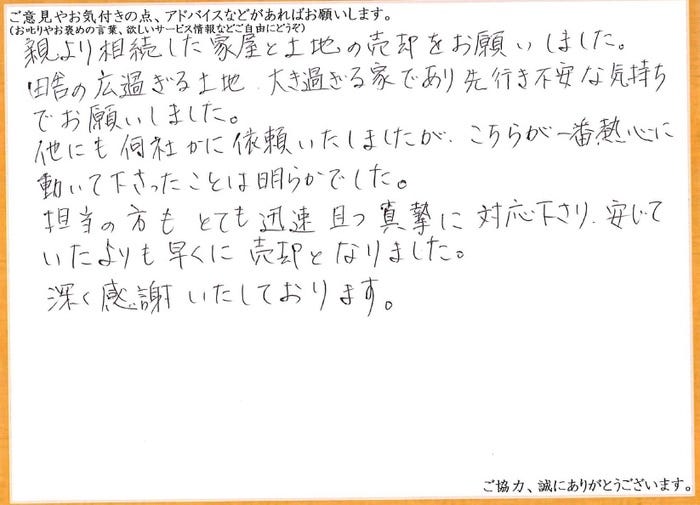 ご意見やお気付きの点、アドバイスなどがあればお願いします。
(お叱りやお褒めの言葉、欲しいサービス情報などご自由にどうぞ)
親より相続した家屋と土地の売却をお願いしました。
田舎の広過ぎる土地、大き過ぎる家であり先行き不安な気持ち
でお願いしました。
他にも何社かに依頼いたしましたが、こちらが一番熱心に
動いて下さったことは明らかでした。
担当の方も とても迅速 且つ 真摯に 対応下さり、安じて
いたよりも早くに 売却となりました。
深く感謝いたしております。
ご協力、誠にありがとうございます。